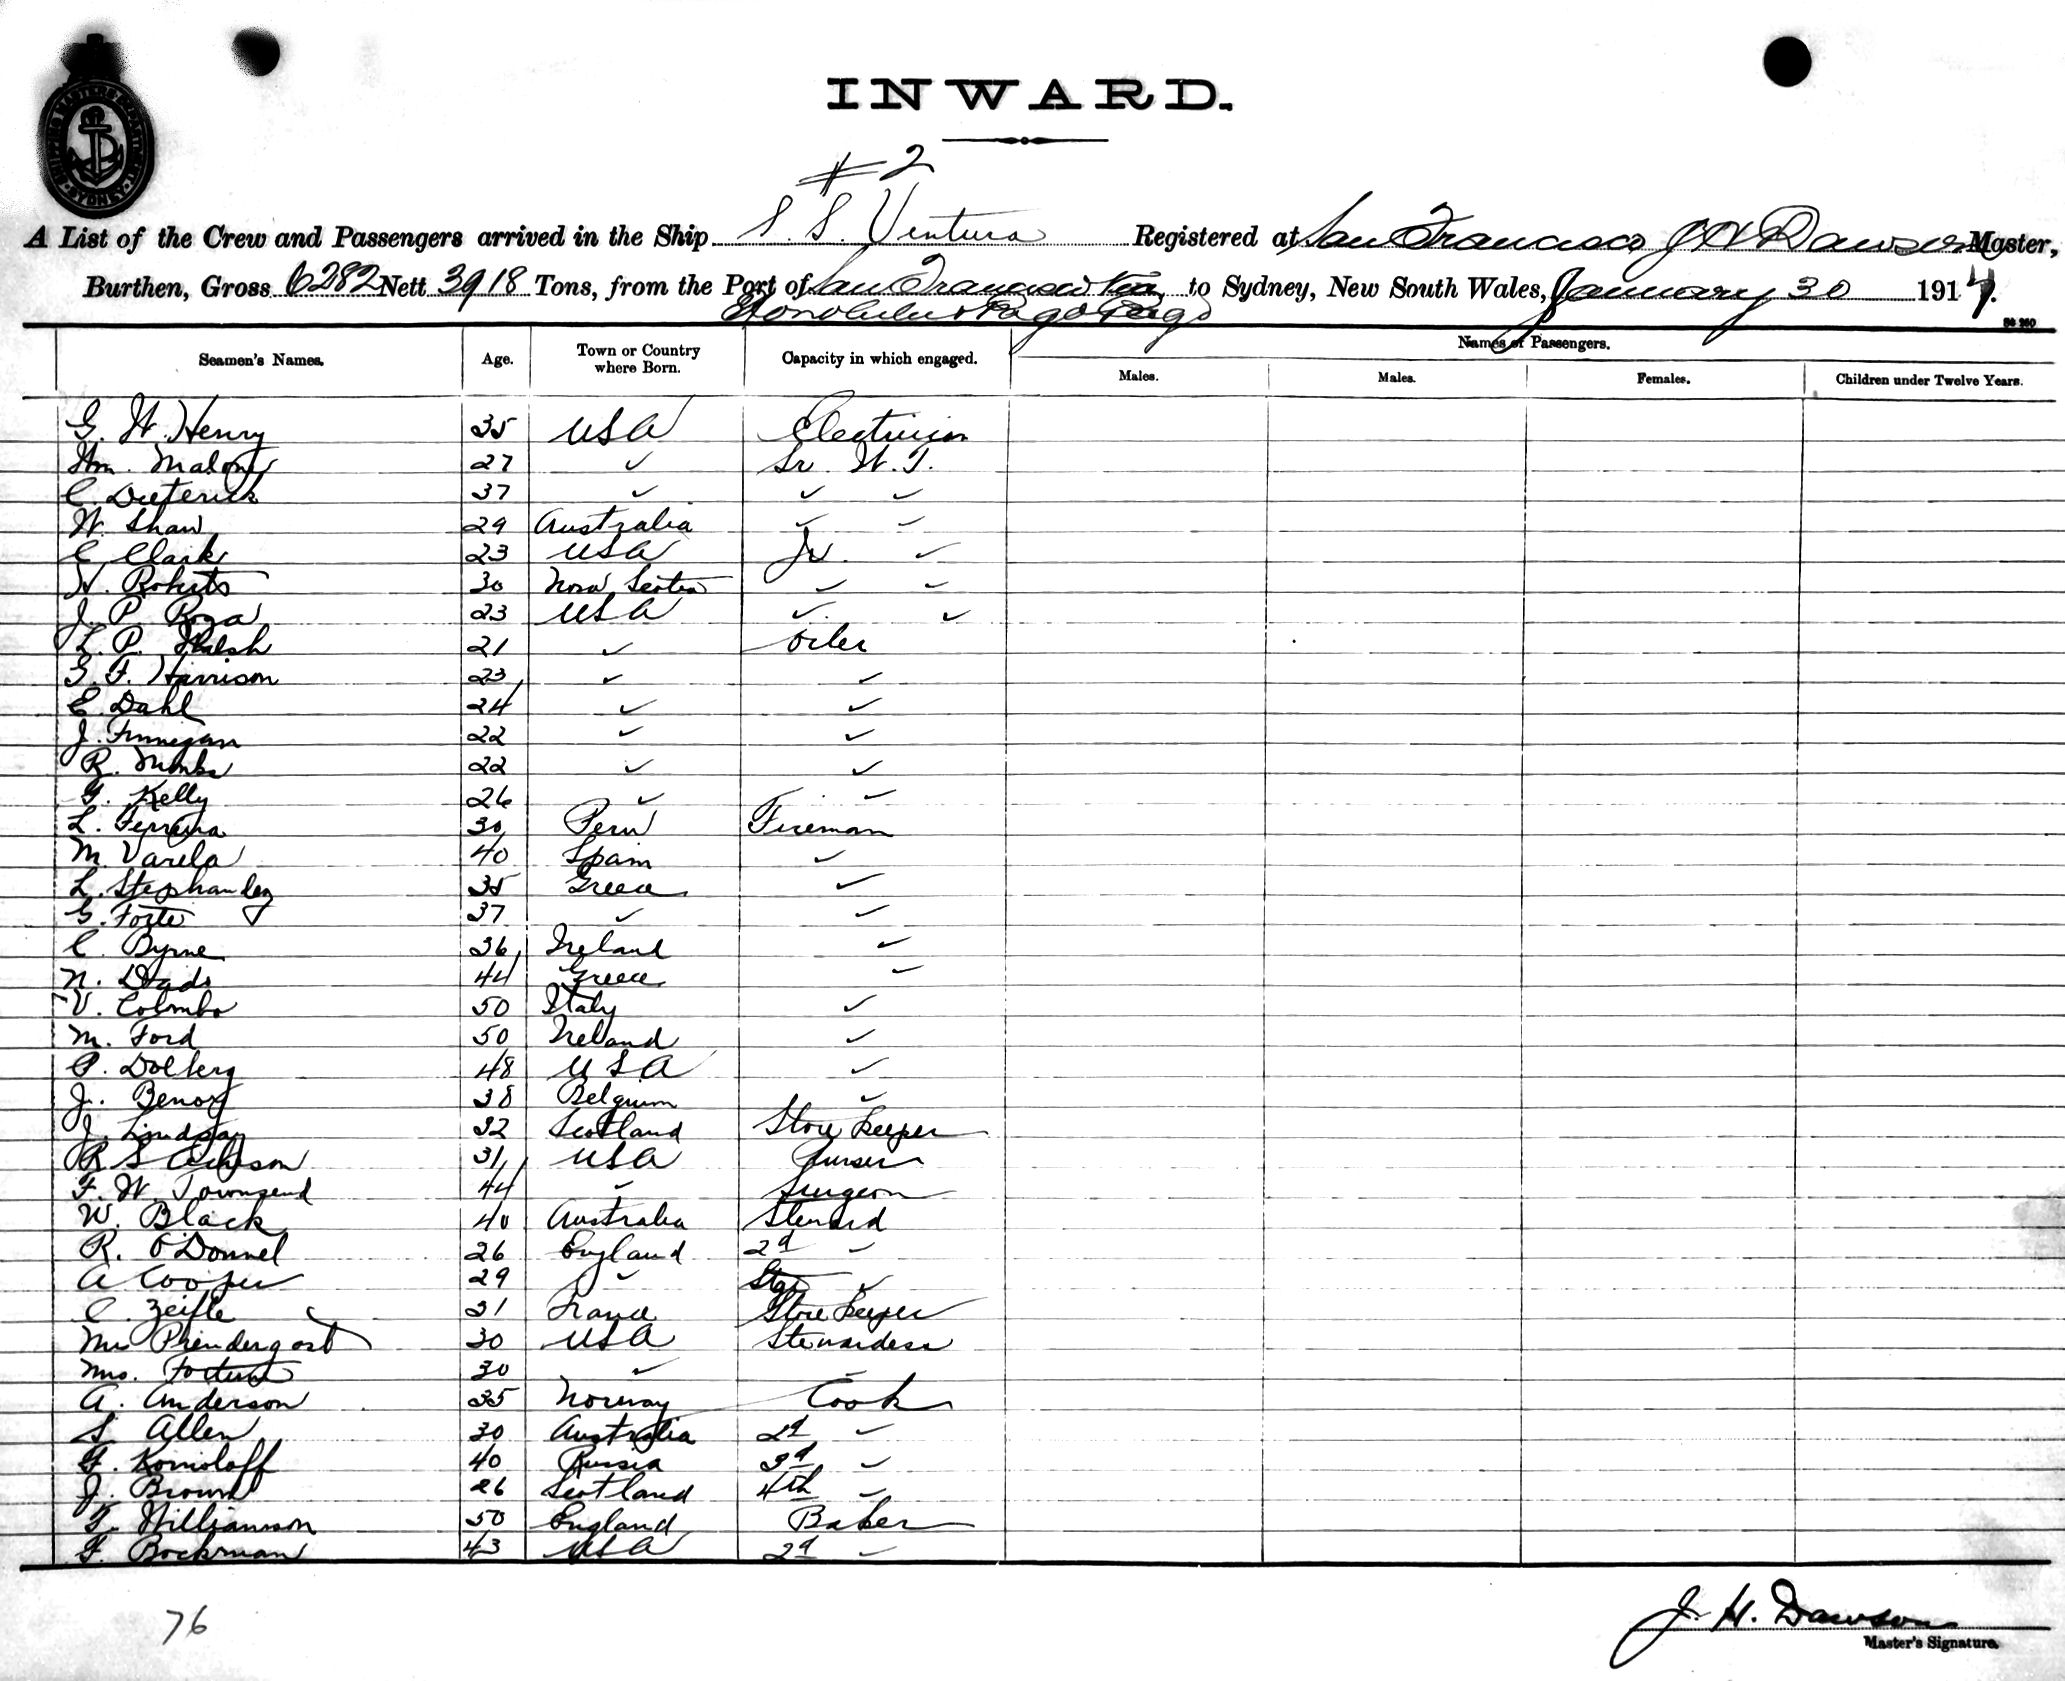 SHIPPING MASTERS DEPARTMENT SYDNEY
INWARD.
#2
A List of the Crew and Passengers arrived in the Ship S. S. Ventura Registered at San Francisco J H Dawson Master,
Burthen, Gross 6282 Nett 3918 Tons, from the Port of San Francisco via to Sydney, New South Wales, January 30 1914.
Honolulu & Pago Pago
Seamen's Names. Age. Town or Country where Born. Capacity in which engaged. Names of Passengers.
Males. Males. Females. Children under Twelve Years.
G. W. Henry 35 USA Electrician
Wm. Malony 27 ✓ Sr. W. T.
C. Dieterich 37 ✓ ✓ ✓
W. Shaw 29 Australia ✓ ✓
C Clark 23 USA Jr. ✓
H. Roberts 30 Nova Scotia ✓ ✓
J. P. Roza 23 USA ✓ ✓
L. P. Walsh 21 ✓ Oiler
G. F. Harrison 23 ✓ ✓
E. Dahl 24 ✓ ✓
J. Finnegan 22 ✓ ✓
R. 22 ✓ ✓
G. Kelly 26 ✓ ✓
L. Ferreira 30 Peru Fireman
M Varela 40 Spain ✓
L. Stephandez 35 Greece ✓
G. Forte 37 ✓ ✓
C. Byrne 36 Ireland ✓
N. Dads 44 Greece ✓
V. Colombo 50 Italy ✓
M. Ford 50 Ireland ✓
P. Dolberg 48 USA ✓
J. Benoy 38 Belgium ✓
J. Lindsay 32 Scotland Store keeper
R S Acheson 31 USA Purser
F. W. Townsend 44 ✓ Surgeon
W. Black 40 Australia Steward
R. O'Donnel 26 England 2d ✓
A Cooper 29 ✓ ✓
C. Zeifle 31 France Store keeper
Mrs Prendergast 30 USA Stewardess
Mrs. 30 ✓ ✓
A. Anderson 35 Norway Cook
S. Allen 30 Australia 2d ✓
G. Komoloff 40 Russia 3d ✓
J. Brown 26 Scotland 4th ✓
T. Williamson 50 England Baker
F. Bockman 43 USA 2d ✓
76
J. H. Dawson
Master's Signature.